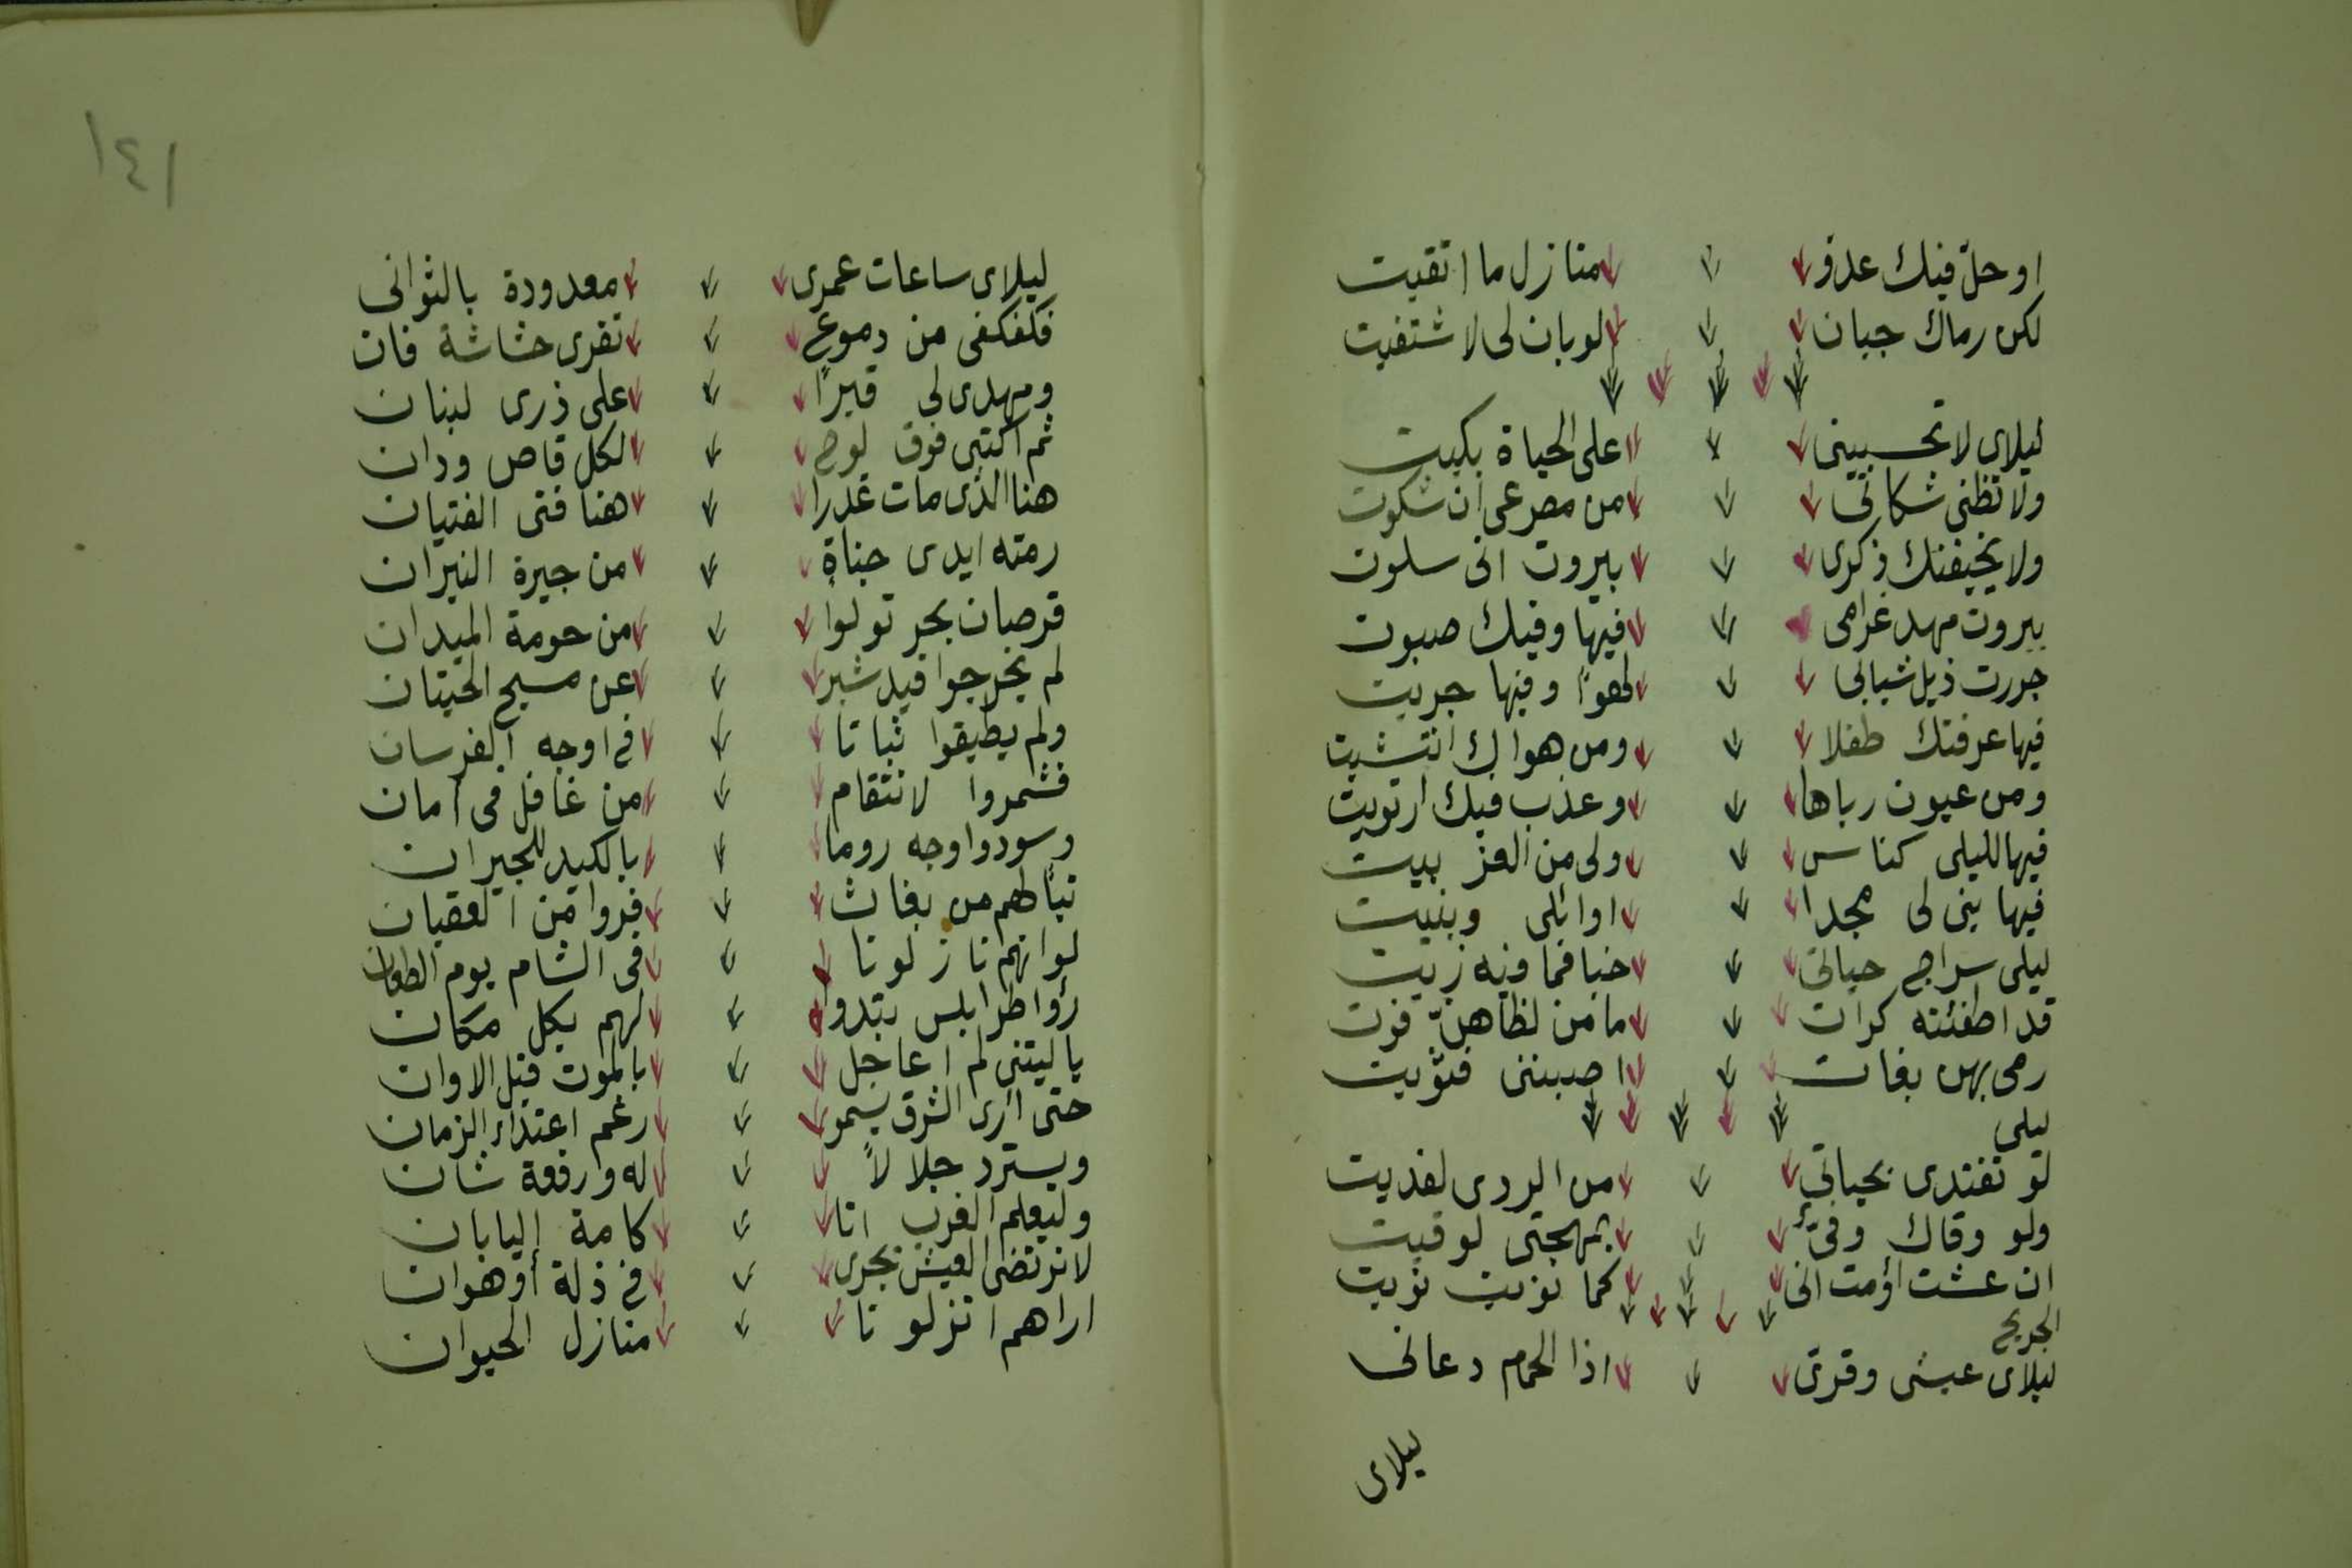 او حلّ فيك عدوّ منازل ما اتقيت
لكن رماك جبان لو بان لى لاشتفيت
ليلاى لا تحسبينى على الحياة بكيت
ولا تظنى شكاتى من مصرعى ان شكوت
ولا يخيفنك ذكرى بيروت انى سلوت
بيروت مهد غرامى فيها وفيك صبوت
جررت ذيل شبابى لهوًا وفيها جريت
فيها عرفتك طفلا ومن هواك انتشيت
ومن عيون رباها وعذب فيك ارتويت
فيها لليلى كناس ولى من العز بيت
فيها بنى لى مجدا اوائلى وبنيت
ليلى سراج حياتى خبا فما فيه زيت
قد اطفئته كرات ما من لظاهنّ فوت
رمى بهن بغات اصبننى فثويت
ليلى
لو تفتدى بحياتى من الردى لفديت
ولو وقاك وفىّ بمهجتى لوقيت
ان عشت او مت انى كما نويت نويت
الجريح
ليلاى عيشى وقرى اذا الحمام دعانى
ليلاى
١٤١
ليلاى ساعات عمرى معدودة بالثوانى
فكفكفى من دموع تفرى حشاشة فان
ومهدى لى قبرًا على ذرى لبنان
ثم اكتبى فوق لوح لكل قاص ودان
هنا الذى مات غدرا هنا فتى الفتيان
رمته ايدى جناةٍ من جيرة النيران
قرصان بحر تولوا من حومة الميدان
لم يخرجوا قيد شبر عن مسبح الحيتان
ولم يطيقوا ثباتا فى اوجه الفرسان
فشمروا لانتقام من غافل فى امان
وسودوا وجه روما بالكيد للجيران
تبًا لهم من بغاث فروا من العقبان
لو انهم نازلونا فى الشام يوم الطعان
رؤا طرابلس تبدوا لهم بكل مكان
يا ليتنى لم اعاجل بالموت قبل الاوان
حتى ارى الشرق يسمو رغم اعتداء الزمان
ويسترد جلالاً له ورفعة شان
وليعلم الغرب انا كامة اليابان
لا نرتضى العيش نجرى فى ذلة او هوان
اراهم انزلونا منازل الحيوان